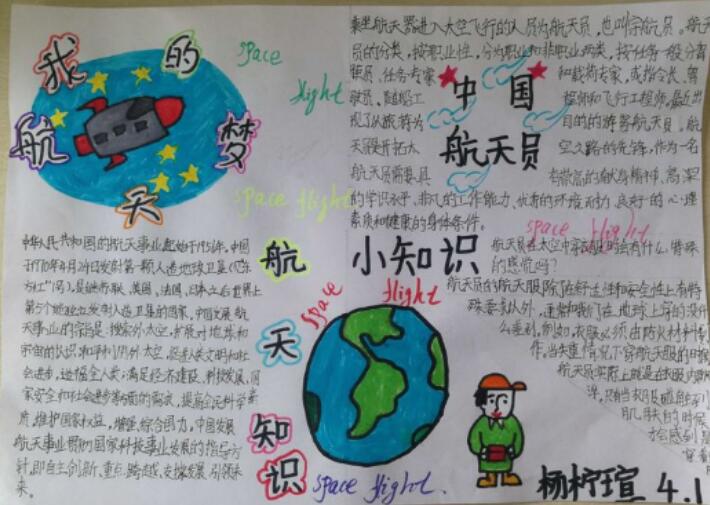 我的航天梦
space
flight
space flight
中华人民共和国的航天事业起始于1956年。中国
于1970年4月24日发射第一颗人造地球卫星
是继苏联、美国、法国、日本之后世界上
第5个独立发射人造卫星的国家。中国发展航
天事业的宗旨是:探索外太空,扩展对地球和
宇宙的认识;和平利用外太空,促进人类文明和社
会进步,造福全人类;满足经济建设、科技发展、国
家安全和社会进步等方面的需求,提高全民科学素
质,维护国家权益,增强综合国力。中国发展
航天事业贯彻国家科技事业发展的指导方
针,即自主创新、重点跨越、支撑发展、引领未
来。
航天知识
乘坐航天器进入太空飞行的人员为航天员,也叫宇航员。航天
员的分类,按职业性,分为职业和非职业两类,按任务一般分
任务专家和载荷专家,或指令长、驾
驶员、随船工程师和飞行工程师。最近出
目的的游客航天员。航
空之路的先锋,作为一名
航天员需要具
的学识水平、非凡的工作能力、优秀的环境耐力、良好的心理
素质和健康的身体条件。
中国
航天员
小知识
space flight
航天员在太空中穿衣服时会有什么特殊
的感觉吗?
航天员的航天服除了在舒适性和安全性上有特
殊要求以外,通常和我们在地球上穿的没什
么差别,例如,衣服必须由防火材料制
作。当失重情况下穿航天服的时候
航天员实际上就是在衣服内
肌肤的时候
才会感到
space flight
space flight.
杨柠瑄 4.1